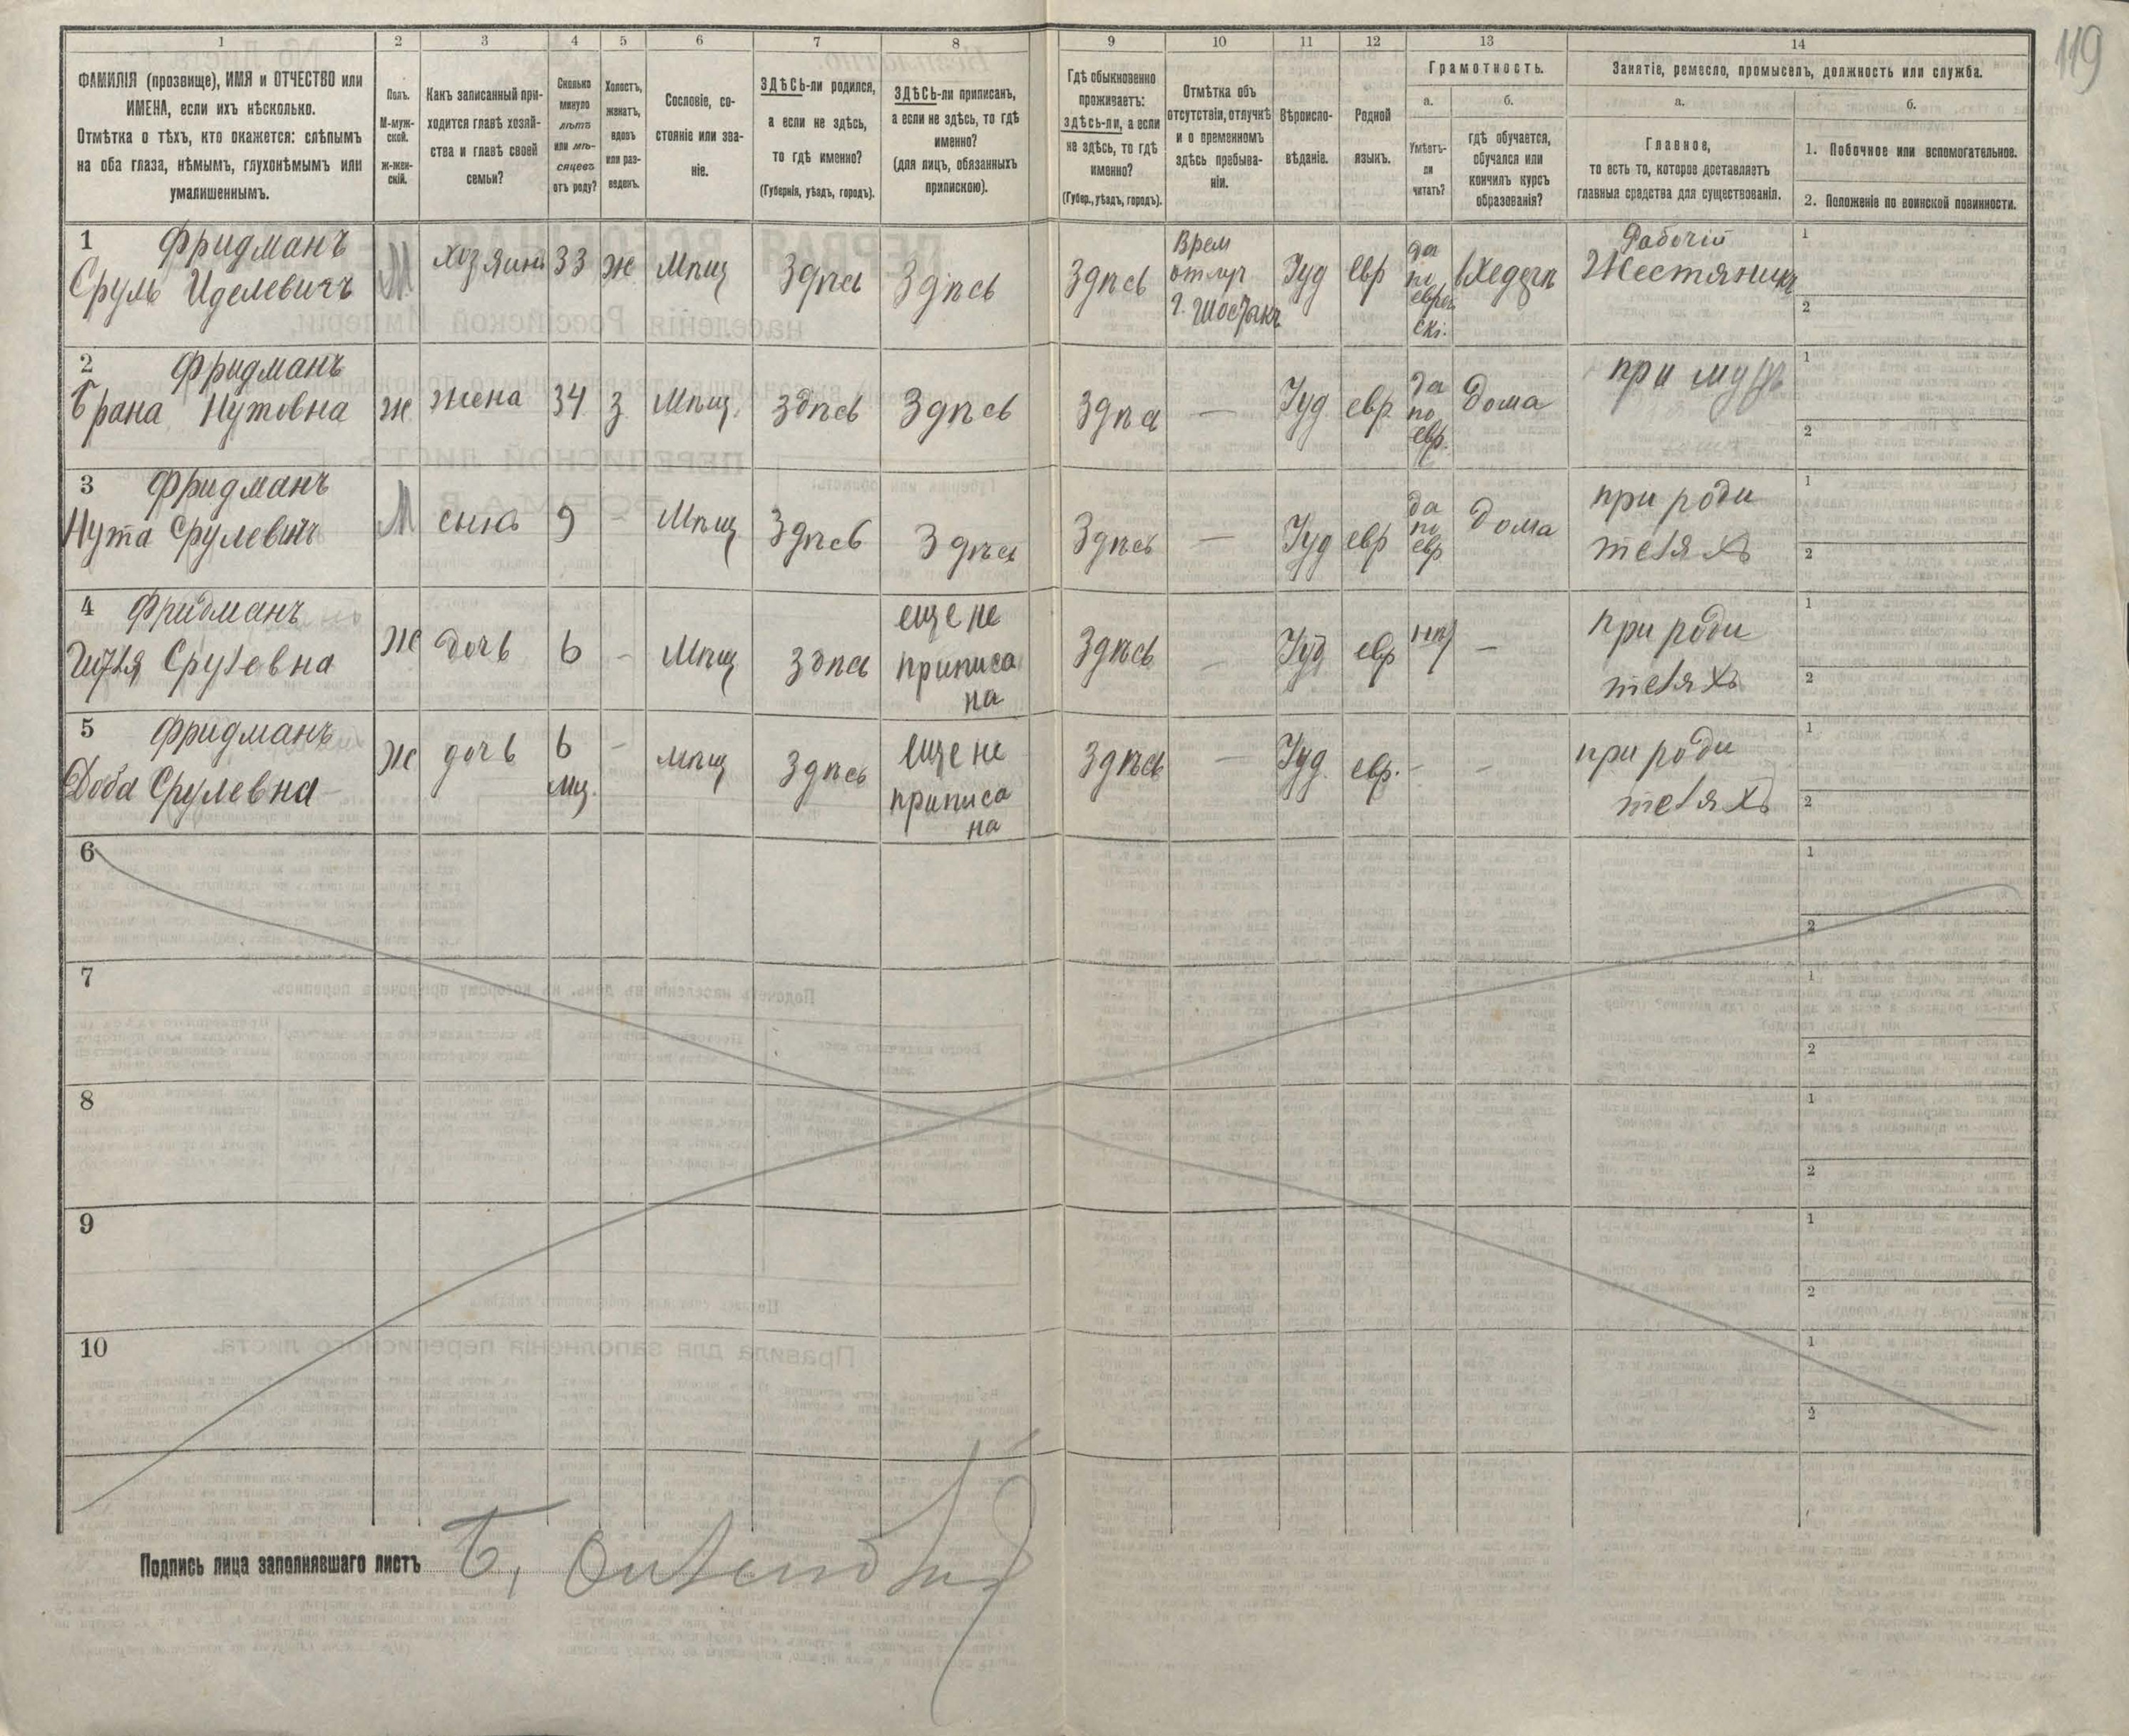 119
1 2 3 4 5 6 7 8 9 10 11 12 13 14
ФАМИЛІЯ (прозвище), ИМЯ и ОТЧЕСТВО или
ИМЕНА, если ихъ нѣсколько.
Отмѣтка о тѣхъ, кто окажется: слѣпымъ
на оба глаза, нѣмымъ, глухонѣмымъ или
умалишеннымъ.
Полъ.
М-муж-
ской.
ж-жен-
скій.
Какъ записанный при-
ходится главѣ хозяй-
ства и главѣ своей
семьи?
Сколько
минуло
лѣтъ
или мѣ-
сяцевъ
отъ роду?
Холостъ,
женатъ,
вдовъ
или раз-
веденъ.
Сословіе, со-
стояніе или зва-
ніе.
ЗДѢСЬ-ли родился,
а если не здѣсь,
то гдѣ именно?
(Губернія, уѣздъ, городъ).
ЗДѢСЬ-ли приписанъ,
а если не здѣсь, то гдѣ
именно?
(для лицъ, обязанныхъ
припискою).
Гдѣ обыкновенно
проживаетъ:
здѣсь-ли, а если
не здѣсь, то гдѣ
именно?
(Губер., уѣздъ, городъ).
Отмѣтка объ
отсутствіи, отлучкѣ
и о временномъ
здѣсь пребыва-
ніи.
Вѣроиспо-
вѣданіе.
Родной
языкъ.
Грамотность.
а.
Умѣетъ-
ли
читать?
б.
гдѣ обучается,
обучался или
кончилъ курсъ
образованія?
Занятіе, ремесло, промыселъ, должность или служба.
а.
Главное,
то есть то, которое доставляетъ
главныя средства для существованія.
б.
1. Побочное или вспомогательное.
2. Положеніе по воинской повинности.
1 Фридманъ
Сруль Иделевичъ
М хозяинъ 33 ж Мѣщ Здѣсь Здѣсь Здѣсь
Врем
отлуч
Іуд евр
да
по
евре
скі.
Рабочій
Жестяникъ
1
2
2 Фридманъ
Брана Нутовна
ж жена 34 з. Мѣщ. Здѣсь Здѣсь Здѣсь — Іуд евр
да
по
евр.
дома
при мужѣ
1
2
3 Фридманъ
Нута Срулевичъ
М сынъ 9 - Мѣщ Здѣсь Здѣсь Здѣсь — Іуд евр
да
по
евр
дома
при роди
теляхъ
1
2
4 Фридманъ
Срулевна
ж дочь 6 - Мѣщ Здѣсь
еще не
приписа
на
Здѣсь — Іуд евр нѣт —
при роди
теляхъ
1
2
5 Фридманъ
Доба Срулевна
ж дочь 6
мц.
- мѣщ Здѣсь
еще не
приписа
на
Здѣсь — Іуд. евр. - -
при роди
теляхъ
1
2
6 1
2
7 1
2
8 1
2
9 1
2
10 1
2
Подпись лица заполнявшаго листъ Б.